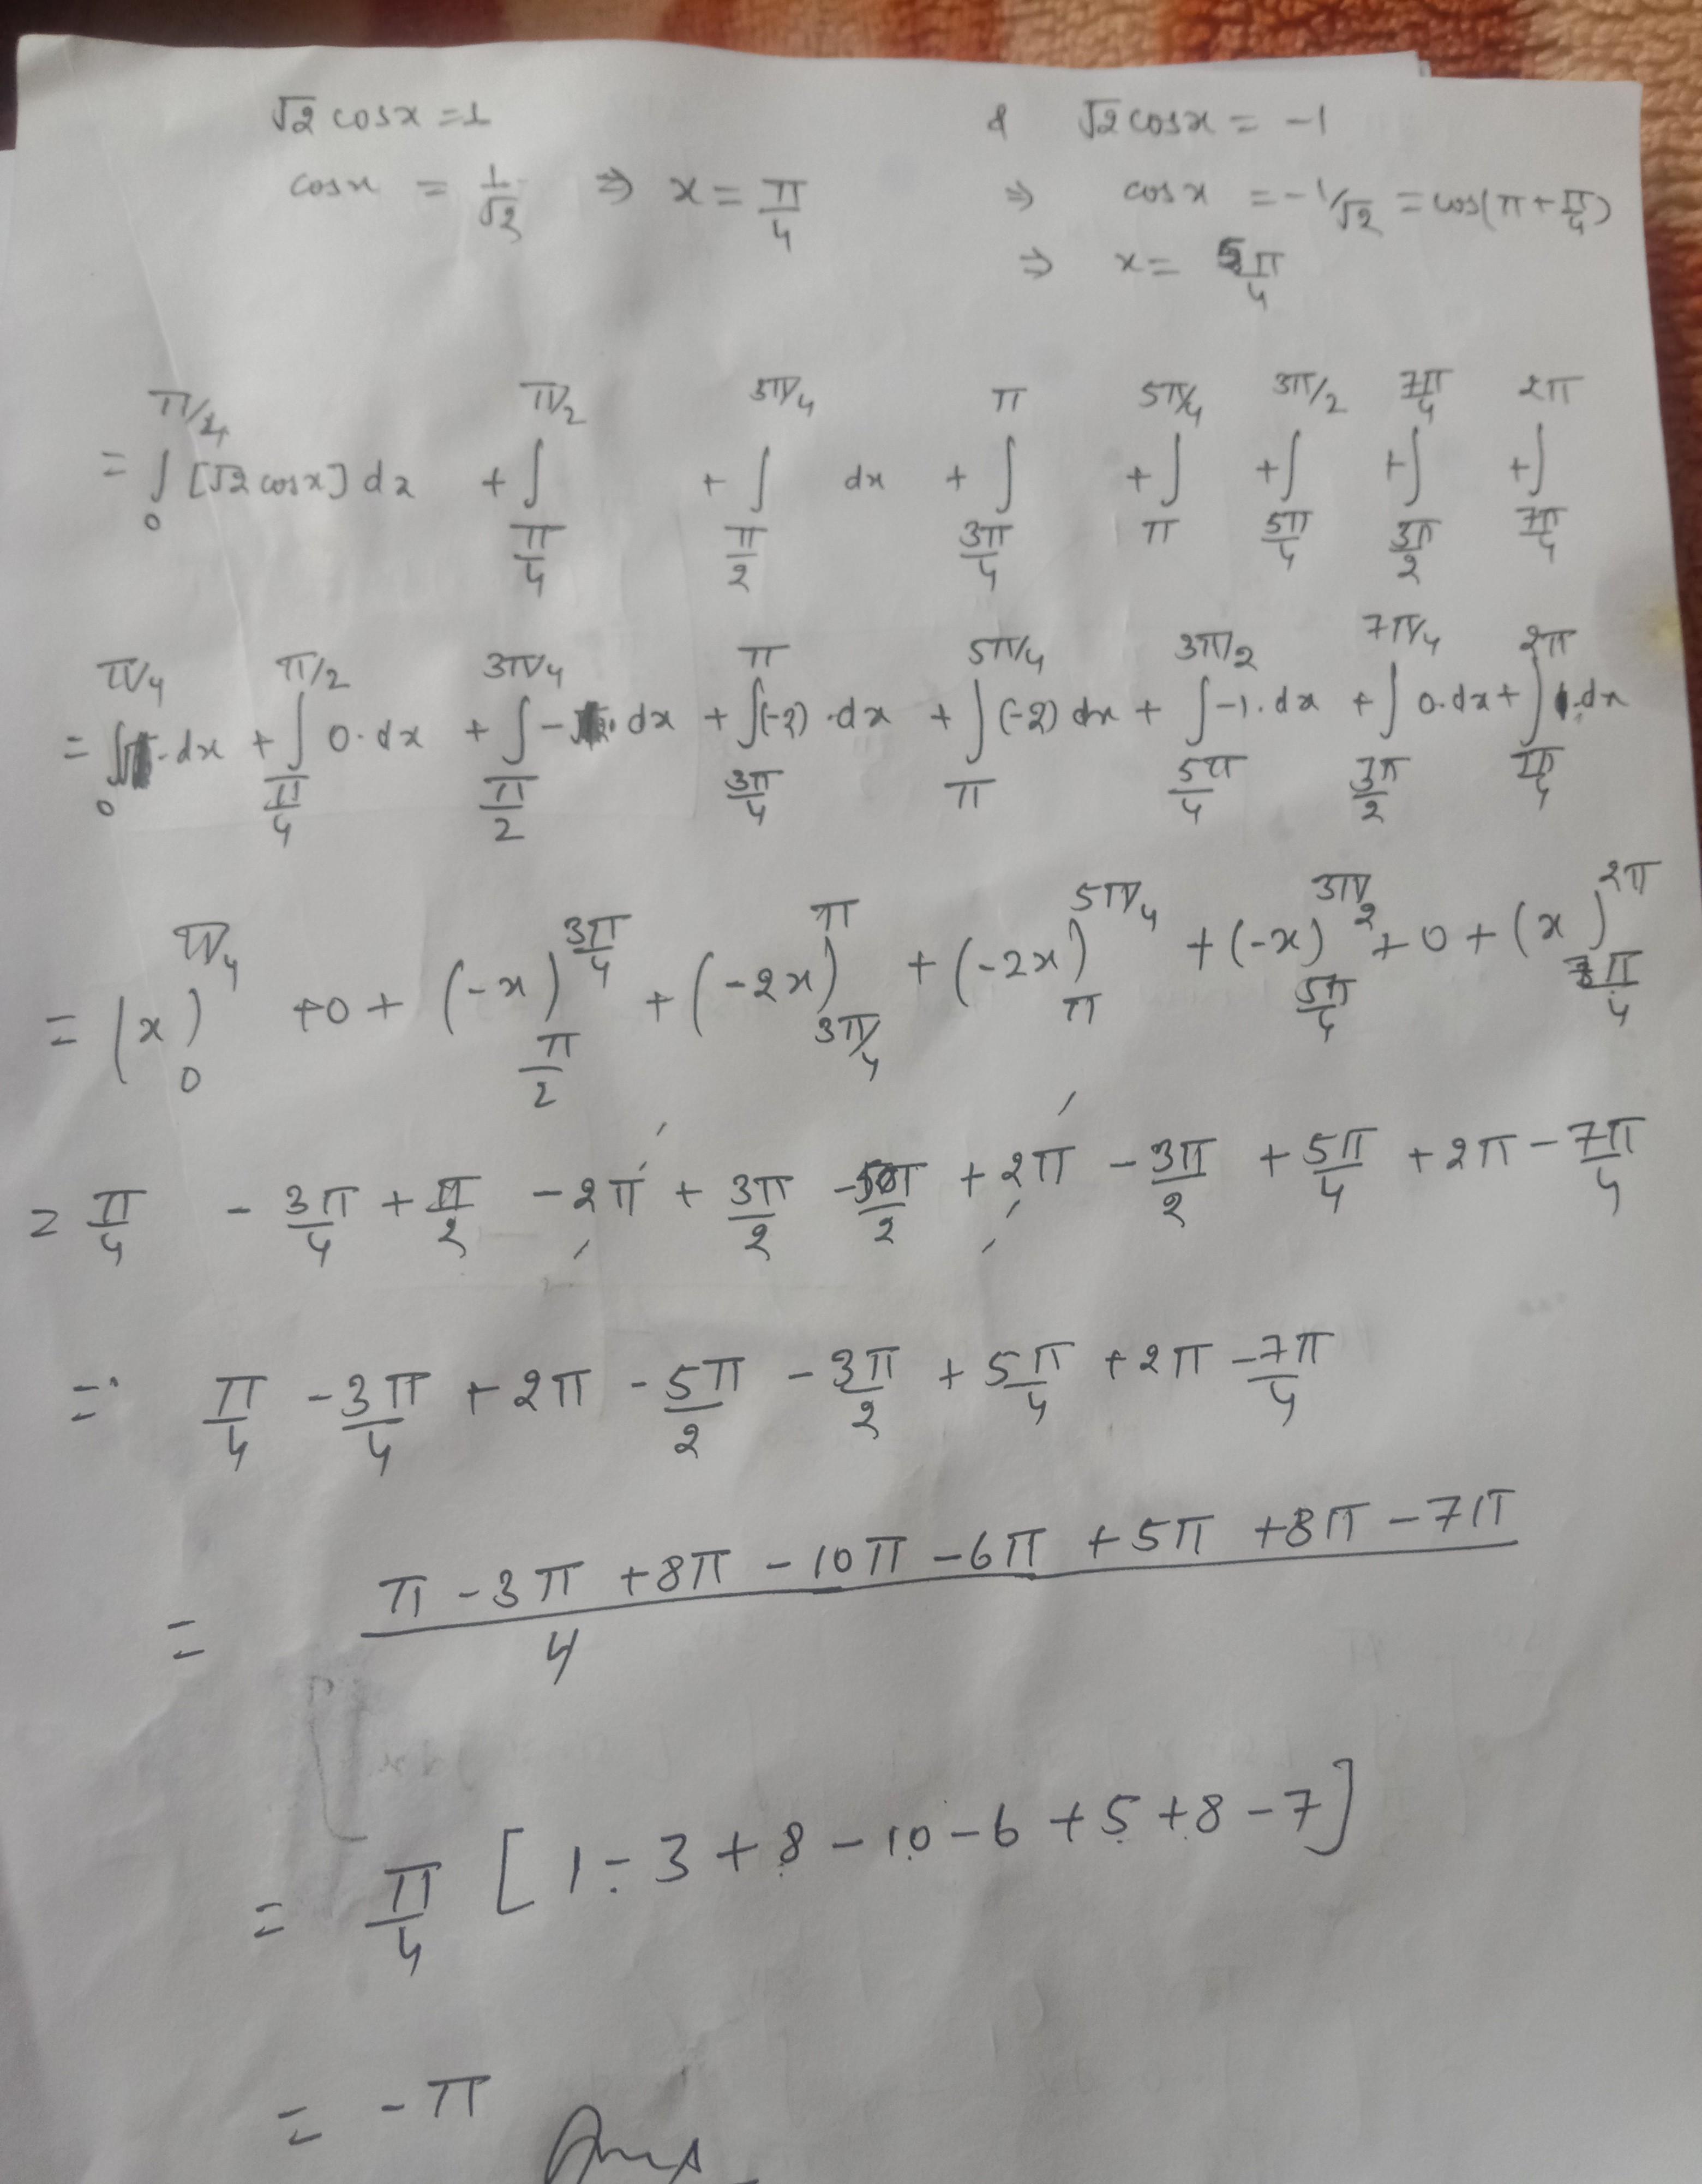 √2 cosx = 1 & √2 cosx = -1
cosx = 1/√2 ⇒ x = π/4 ⇒ cosx = -1/√2 = cos(π + π/4)
⇒ x = 5π/4
= ∫₀^{π/4} [√2 cosx] dx + ∫_{π/4}^{π/2} + ∫_{π/2}^{3π/4} dx + ∫_{3π/4}^{π} + ∫_{π}^{5π/4} + ∫_{5π/4}^{3π/2} + ∫_{3π/2}^{7π/4} + ∫_{7π/4}^{2π}
= ∫₀^{π/4} · dx + ∫_{π/4}^{π/2} 0·dx + ∫_{π/2}^{3π/4} - · dx + ∫_{3π/4}^{π} (-2)·dx + ∫_{π}^{5π/4} (-2) dx + ∫_{5π/4}^{3π/2} -1·dx + ∫_{3π/2}^{7π/4} 0·dx + ∫_{7π/4}^{2π} 1·dx
= (x)₀^{π/4} + 0 + (-x)_{π/2}^{3π/4} + (-2x)_{3π/4}^{π} + (-2x)_{π}^{5π/4} + (-x)_{5π/4}^{3π/2} + 0 + (x)_{7π/4}^{2π}
= π/4 - 3π/4 + π/2 - 2π + 3π/2 - 5π/2 + 2π - 3π/2 + 5π/4 + 2π - 7π/4
= π/4 - 3π/4 + 2π - 5π/2 - 3π/2 + 5π/4 + 2π - 7π/4
= (π - 3π + 8π - 10π - 6π + 5π + 8π - 7π)/4
= π/4 [1 - 3 + 8 - 10 - 6 + 5 + 8 - 7]
= -π Ans.